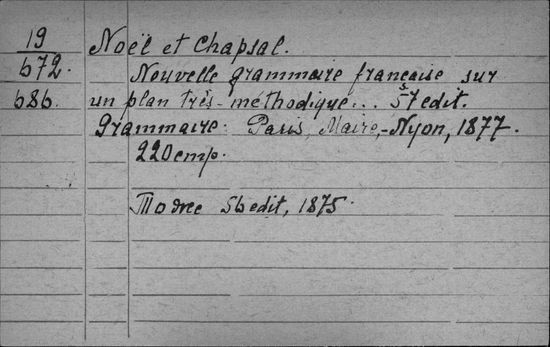 19
672.
686.
Noël et Chapsal.
Nouvelle grammaire française sur
un plan très-méthodique... 57 edit.
Grammaire. Paris, Maire-Nyon, 1877.
220 стр.
То же 56 edit, 1875.